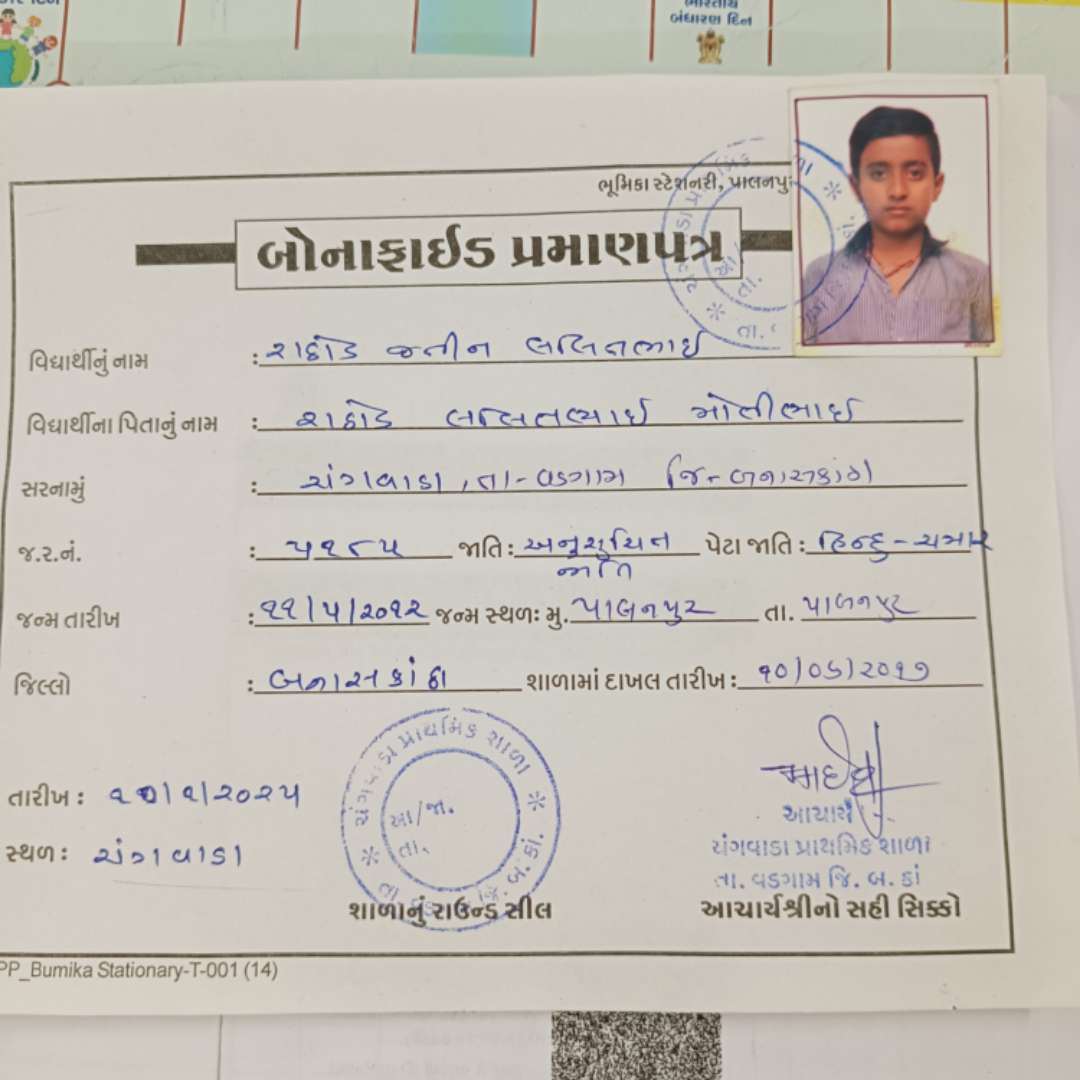 ભારતીય
બંધારણ દિન
ભૂમિકા સ્ટેશનરી, પાલનપુ
બોનાફાઈડ પ્રમાણપત્ર
વિદ્યાર્થીનું નામ : રાઠોડ જતીન લલિતભાઈ
વિદ્યાર્થીના પિતાનું નામ : રાઠોડ લલિતભાઈ મોતીભાઈ
સરનામું : ચંગવાડા, તા-વડગામ જિ-બનાસકાંઠા
જ.ર.નં. : ૫૧૮૫ જાતિ : અનુસુચિત જાતિ પેટા જાતિ : હિન્દુ-ચમાર
જન્મ તારીખ : ૧૧/૫/૨૦૧૨ જન્મ સ્થળઃ મુ. પાલનપુર તા. પાલનપુર
જિલ્લો : બનાસકાંઠા શાળામાં દાખલ તારીખ : ૧૦/૦૬/૨૦૧૭
તારીખ : ૧૦/૧/૨૦૨૫
સ્થળ : ચંગવાડા
ચંગવાડા પ્રાથમિક શાળા
આ/જા.
તા.
જિ. બ. કાં.
શાળાનું રાઉન્ડ સીલ
આચાર્ય
ચંગવાડા પ્રાથમિક શાળા
તા. વડગામ જિ. બ. કાં
આચાર્યશ્રીનો સહી સિક્કો
PP_Bumika Stationary-T-001 (14)